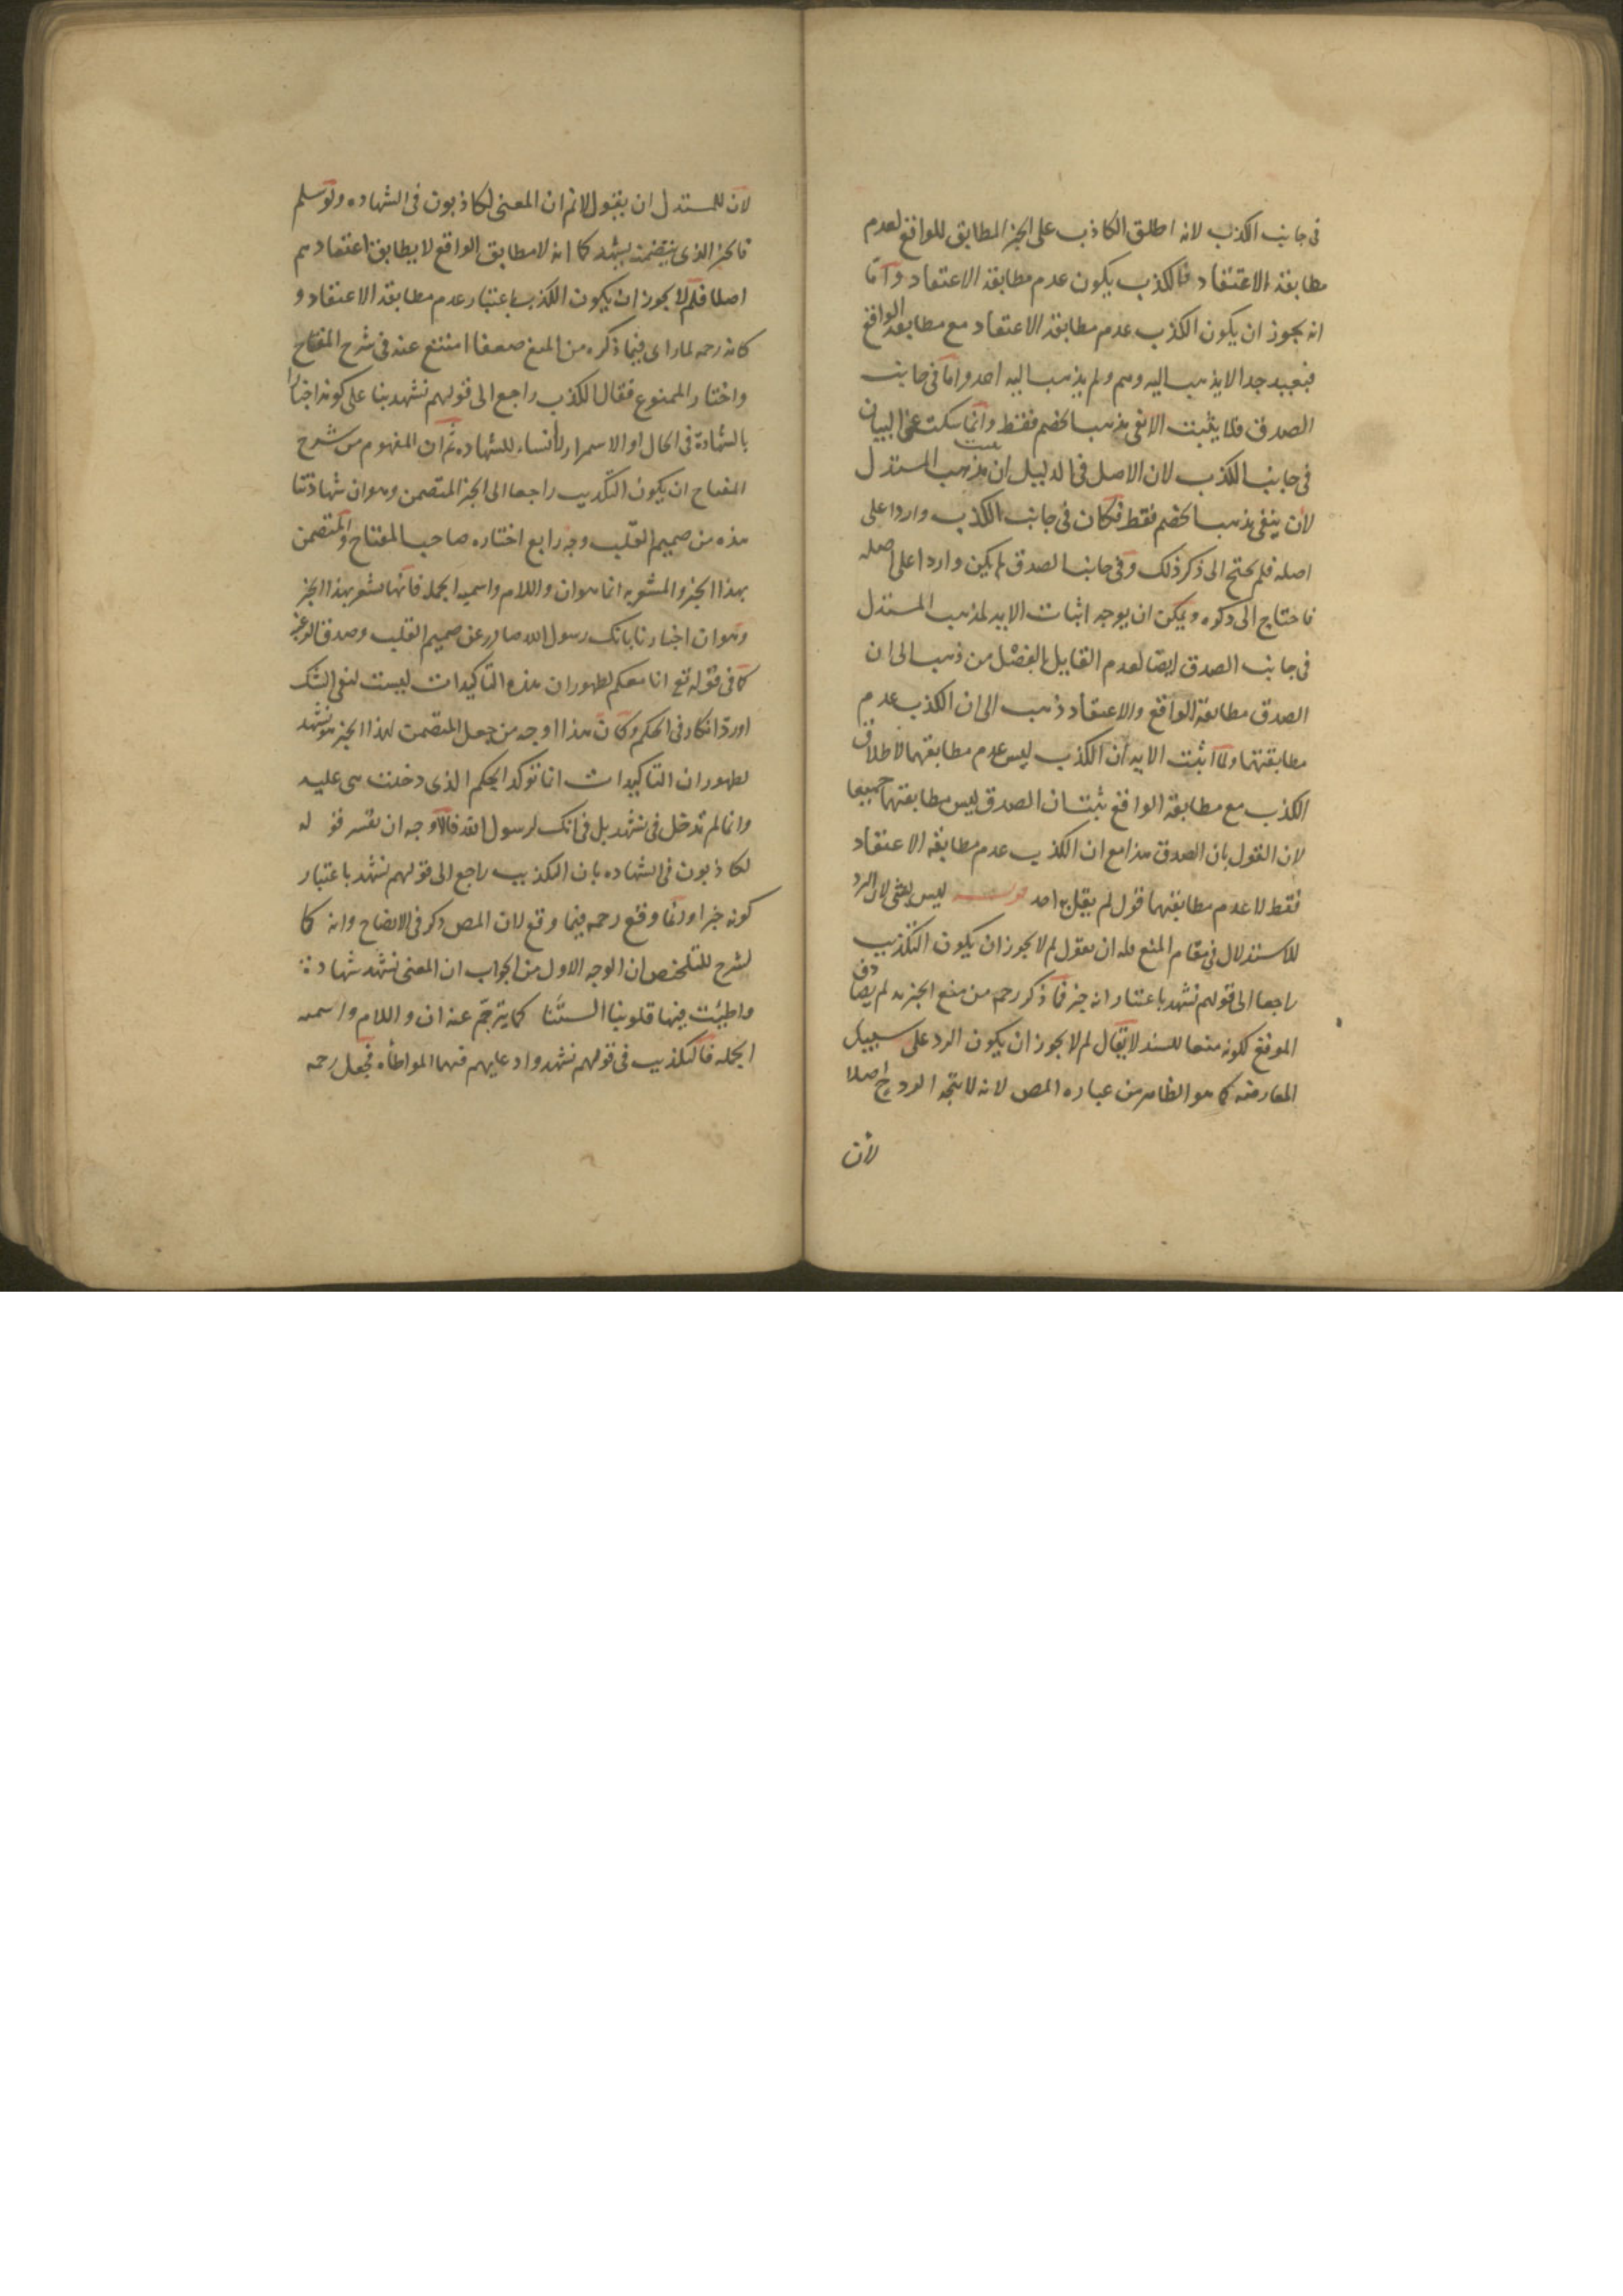 فى جانب الكذب لانه اطلق الكاذب على الخبر المطابق للواقع لعدم
مطابقة الاعتقاد فالكذب يكون عدم مطابقة الاعتقاد واما
انه يجوز ان يكون الكذب عدم مطابقة الاعتقاد مع مطابقة الواقع
فبعيد جدا لا يذهب اليه وهم ولم يذهب اليه احد واما فى جانب
الصدق فلا يثبت الا نفى مذهب الخصم فقط وانما سكت عن البيان
فى جانب الكذب لان الاصل فى الدليل ان يثبت مذهب المستدل
لا ان ينفى مذهب الخصم فقط فكان فى جانب الكذب واردا على
اصله فلم يحتج الى ذكر ذلك وفى جانب الصدق لم يكن واردا على اصله
فاحتاج الى ذكره ويمكن ان يوجه اثبات الاية لمذهب المستدل
فى جانب الصدق ايضا لعدم القايل بالفصل من ذهب الى ان
الصدق مطابقة الواقع والاعتقاد ذهب الى ان الكذب عدم
مطابقتهما ولما اثبت الاية ان الكذب ليس عدم مطابقتهما لاطلاق
الكذب مع مطابقة الواقع ثبت ان الصدق ليس مطابقتهما جميعا
لان القول بان الصدق هذا مع ان الكذب عدم مطابقة الاعتقاد
فقط لا عدم مطابقتهما قول لم يقل به احد قوله ليس بشى لان الرد
للاستدلال فى مقام المنع فله ان يقول لم لا يجوز ان يكون التكذيب
راجعا الى قولهم نشهد باعتبار انه خبر فما ذكر رحمه من منع الخبرية لم يصادف
الموقع لكونه منعا للسند لا يقال لم لا يجوز ان يكون الرد على سبيل
المعارضة كما هو الظاهر من عبارة المص لانه لا يتجه الرد ح اصلا
لان
لان للمستدل ان يقول لا نم ان المعنى لكاذبون فى الشهاده ولو سلم
فالخبر الذى يتضمنه نشهد كما انه لا مطابق الواقع لا يطابق اعتقادهم
اصلا فلم لا يجوز ان يكون الكذب باعتبار عدم مطابقة الاعتقاد و
كانه رحمه لما راى فيما ذكره من المنع ضعفا امتنع عنه فى شرح المفتاح
واختار الممنوع فقال الكذب راجع الى قولهم نشهد بنا على كونه اخبارا
بالشهادة فى الحال او الاستمرار لا انشاء للشهاده ثم ان المفهوم من شرح
المفتاح ان يكون التكذيب راجعا الى الخبر المتضمن وهو ان شهادتنا
هذه من صميم القلب وجه رابع اختاره صاحب المفتاح والمتضمن
بهذا الخبر والمشعر به انما هو ان واللام واسمية الجملة فانها تشعر بهذا الخبر
وهو ان اخبارنا بانك رسول الله صادر عن صميم القلب وصدق الرغبة
كما فى قوله تع انا معكم لظهور ان هذه التاكيدات ليست لنفى الشك
او رد انكار فى الحكم وكان هذا اوجه من جعل المتضمن لهذا الخبر هو نشهد
لظهور ان التاكيدات انما توكد الحكم الذى دخلت هى عليه
وانما لم تدخل فى نشهد بل فى انك لرسول الله فالاوجه ان تفسر قو له
لكاذبون فى الشهاده بان التكذيب راجع الى قولهم نشهد باعتبار
كونه خبرا وانما وقع رحمه فيما وقع لان المص ذكر فى الايضاح وانه كا
لشرح للتلخيص ان الوجه الاول من الجواب ان المعنى نشهد شهادة
واطيئت فيها قلوبنا السنتنا كما يترجم عنه ان واللام واسمية
الجملة فالتكذيب فى قولهم نشهد وادعايهم فيها المواطاه فجعل رحمه